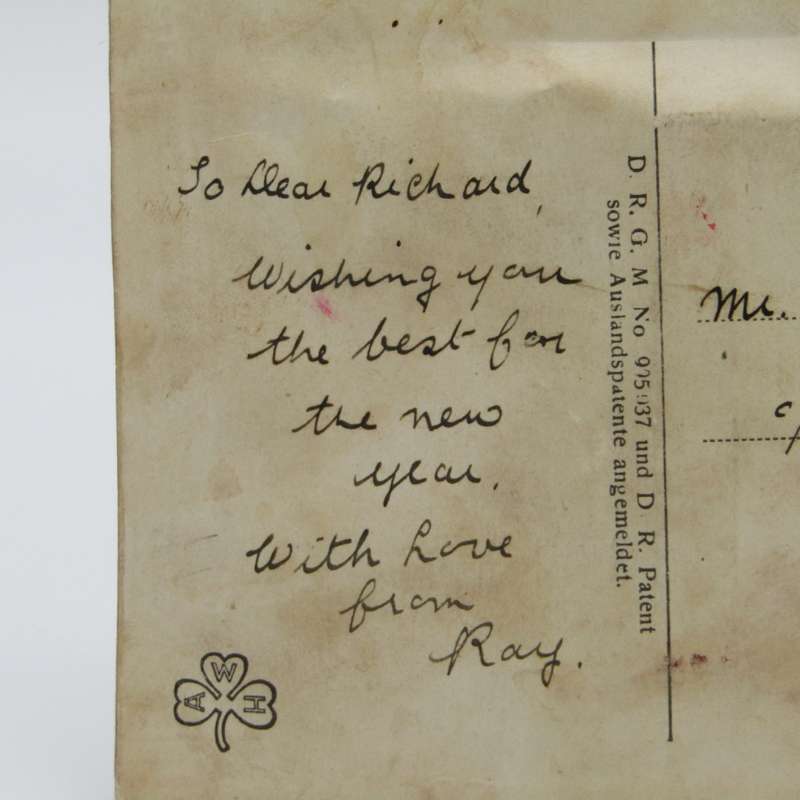 To Dear Richard,
Wishing you
the best for
the new
year.
With Love
from
Ray.
A W H
D. R. G. M No und D R. Patent
sowie Auslandspatente angemeldet.
Mr.